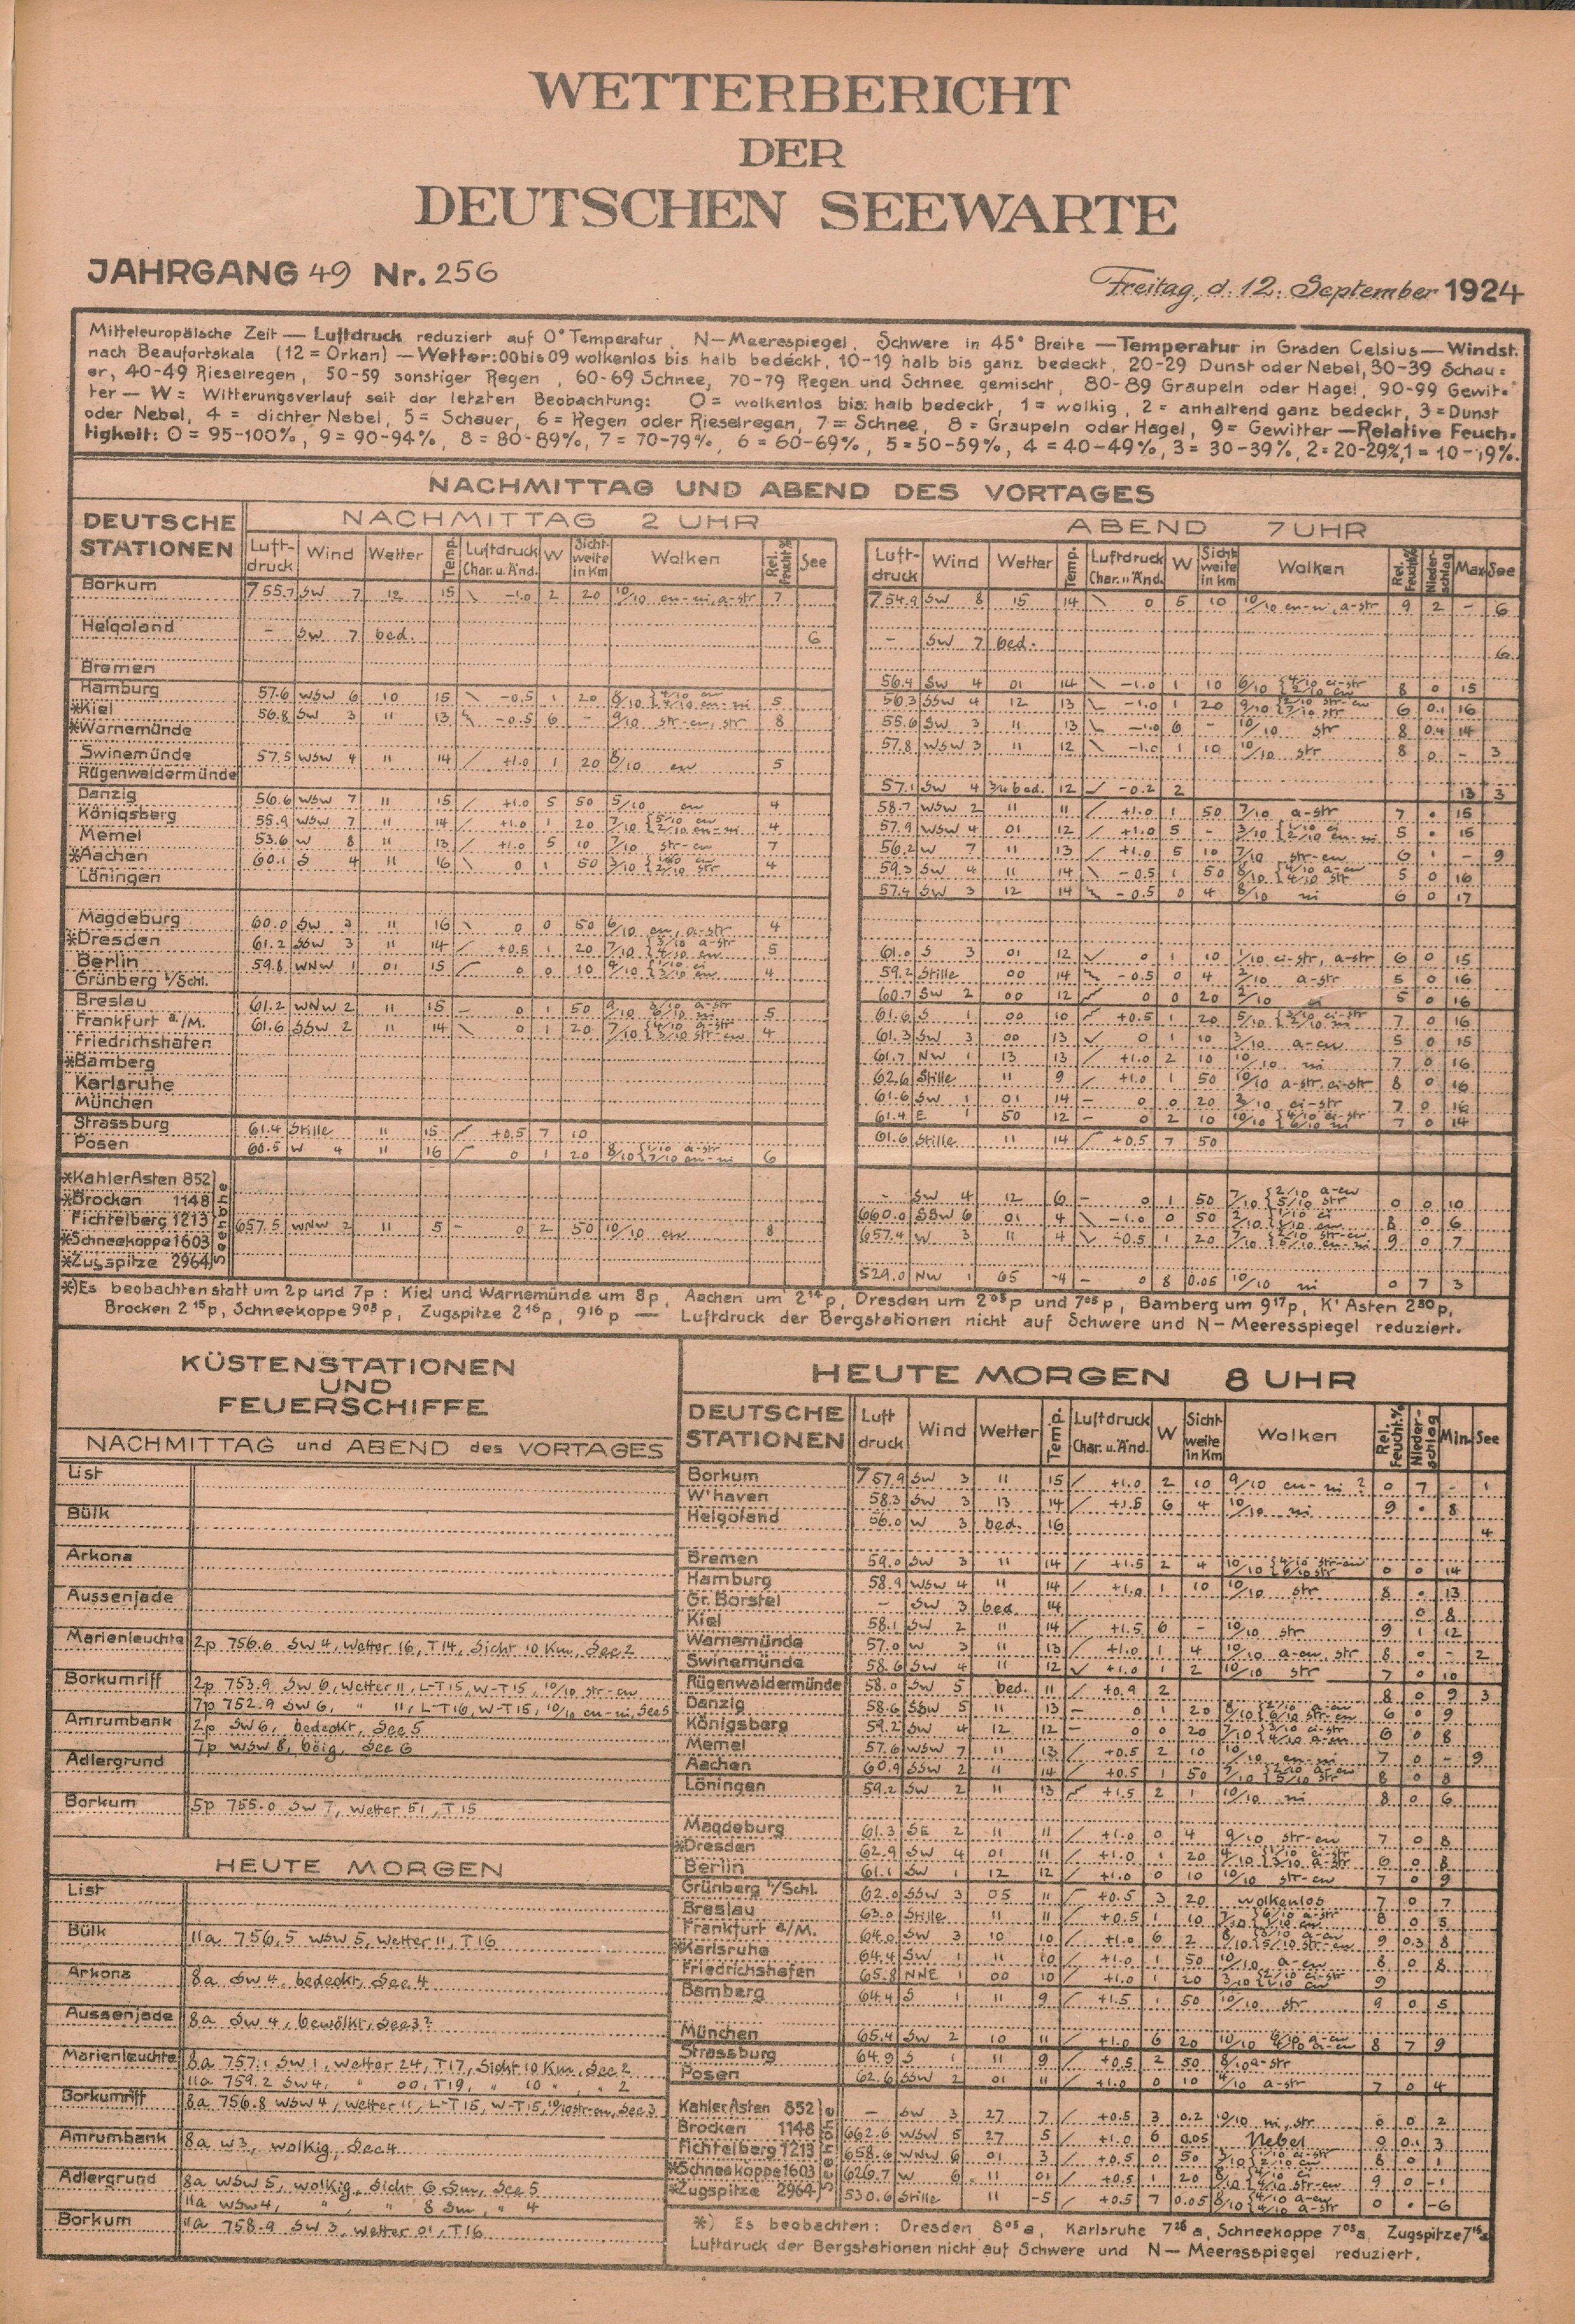 WETTERBERICHT
DER
DEUTSCHEN SEEWARTE
JAHRGANG 49 Nr. 256
Freitag, d. 12. September 1924
Mitteleuropäische Zeit — Luftdruck reduziert auf 0° Temperatur, N—Meerespiegel, Schwere in 45° Breite — Temperatur in Graden Celsius — Windst.
nach Beaufortskala (12 = Orkan) — Wetter: 00 bis 09 wolkenlos bis halb bedeckt, 10-19 halb bis ganz bedeckt, 20-29 Dunst oder Nebel, 30-39 Schau=
er, 40-49 Rieselregen, 50-59 sonstiger Regen, 60-69 Schnee, 70-79 Regen und Schnee gemischt, 80-89 Graupeln oder Hagel, 90-99 Gewit=
ter — W = Witterungsverlauf seit der letzten Beobachtung: 0 = wolkenlos bis halb bedeckt, 1 = wolkig, 2 = anhaltend ganz bedeckt, 3 = Dunst
oder Nebel, 4 = dichter Nebel, 5 = Schauer, 6 = Regen oder Rieselregen, 7 = Schnee, 8 = Graupeln oder Hagel, 9 = Gewitter — Relative Feuch=
tigkeit: 0 = 95-100%, 9 = 90-94%, 8 = 80-89%, 7 = 70-79%, 6 = 60-69%, 5 = 50-59%, 4 = 40-49%, 3 = 30-39%, 2 = 20-29%, 1 = 10-19%.
NACHMITTAG UND ABEND DES VORTAGES
DEUTSCHE STATIONEN
NACHMITTAG 2 UHR
ABEND 7 UHR
Luft-druck Wind Wetter Temp. Luftdruck Char. u. Änd. W Sicht-weite in Km Wolken Rel. Feucht% See
Luft-druck Wind Wetter Temp. Luftdruck Char. u. Änd. W Sicht weite in Km Wolken Rel. Feucht% Nieder-schlag Max See
Borkum 755.7 SW 7 12 15 -1.0 2 20 10/10 cu-ni, a-str 7 754.9 SW 8 15 14 0 5 10 10/10 cu-ni, a-str 9 2 - 6
Helgoland - SW 7 bed. 6 - SW 7 bed. 6
Bremen 56.4 SW 4 01 14 -1.0 1 10 8 0 15
Hamburg 57.6 WSW 6 10 15 -0.5 1 20 5 56.3 SSW 4 12 13 -1.0 1 20 6 0.1 16
*Kiel 56.8 SW 3 11 13 -0.5 6 - 9/10 str-cu, str 8 55.6 SW 3 11 13 -1.0 6 - 10/10 str 8 0.4 14
*Warnemünde 57.8 WSW 3 11 12 -1.0 1 10 10/10 str 8 0 - 3
Swinemünde 57.5 WSW 4 11 14 +1.0 1 20 6/10 cu 5
Rügenwaldermünde 57.1 SW 4 3/4 bed. 12 -0.2 2 13 3
Danzig 56.6 WSW 7 11 15 +1.0 5 50 5/10 cu 4 58.7 WSW 2 11 11 +1.0 1 50 7/10 a-str 7 • 15
Königsberg 55.9 WSW 7 11 14 +1.0 1 20 4 57.9 WSW 4 01 12 +1.0 5 - 5 • 15
Memel 53.6 W 8 11 13 +1.0 5 10 7/10 str-cu 7 56.2 W 7 11 13 +1.0 5 10 7/10 str-cu 6 1 - 9
*Aachen 60.1 S 4 11 16 0 1 50 4 59.3 SW 4 11 14 -0.5 1 50 5 0 16
Löningen 57.4 SW 3 12 14 -0.5 0 4 8/10 ni 6 0 17
Magdeburg 60.0 SW 3 11 16 0 0 50 6/10 cu, a-str 4
*Dresden 61.2 SSW 3 11 14 +0.5 1 20 5 61.0 S 3 01 12 0 1 10 1/10 ci-str, a-str 6 0 15
Berlin 59.8 WNW 1 01 15 0 0 10 4 59.2 Stille 00 14 -0.5 0 4 2/10 a-str 5 0 16
Grünberg i/Schl. 60.7 SW 2 00 12 0 0 20 2/10 ci 5 0 16
Breslau 61.2 WNW 2 11 15 0 1 50 5 61.6 S 1 00 10 +0.5 1 20 7 0 16
Frankfurt a/M. 61.6 SSW 2 11 14 0 1 20 4 61.3 SW 3 00 13 0 1 10 3/10 a-cu 5 0 15
Friedrichshafen 61.7 NW 1 13 13 +1.0 2 10 10/10 ni 7 0 16
*Bamberg 62.6 Stille 11 9 +1.0 1 50 10/10 a-str, ci-str 8 0 16
Karlsruhe 61.6 SW 1 01 14 - 0 0 20 3/10 ci-str 7 0 16
München 61.4 E 1 50 12 - 0 2 10 7 0 14
Strassburg 61.4 Stille 11 15 +0.5 7 10 61.6 Stille 11 14 +0.5 7 50
Posen 60.5 W 4 11 16 0 1 20 8/10 { 1/10 a-str 7/10 cu-ni 6
Seehöhe
*Kahler Asten 852 - SW 4 12 6 - 0 1 50 7/10 { 2/10 a-cu 5/10 str 0 0 10
*Brocken 1148 660.0 SSW 6 01 4 -1.0 0 50 8 0 6
Fichtelberg 1213 657.5 WNW 2 11 5 - 0 2 50 10/10 cu 8 657.4 W 3 11 4 -0.5 1 20 9 0 7
*Schneekoppe 1603
*Zugspitze 2964 529.0 NW 1 65 -4 - 0 8 0.05 10/10 ni 0 7 3
*) Es beobachten statt um 2p und 7p: Kiel und Warnemünde um 8p, Aachen um 2¹⁴p, Dresden um 2⁰⁵p und 7⁰⁵p, Bamberg um 9¹⁷p, K' Asten 2³⁰p,
Brocken 2¹⁵p, Schneekoppe 9⁰³p, Zugspitze 2¹⁶p, 9¹⁶p — Luftdruck der Bergstationen nicht auf Schwere und N—Meeresspiegel reduziert.
KÜSTENSTATIONEN
UND
FEUERSCHIFFE
NACHMITTAG und ABEND des VORTAGES
List
Bülk
Arkona
Aussenjade
Marienleuchte 2p 756.6 SW 4, Wetter 16, T 14, Sicht 10 Km, See 2
Borkumriff 2p 753.9 SW 6, Wetter 11, L-T 15, W-T 15, 10/10 str-cu
7p 752.9 SW 6, " 11, L-T 16, W-T 15, 10/10 cu-ni, See 5
Amrumbank 2p SW 6, bedeckt, See 5
7p WSW 8, böig, See 6
Adlergrund
Borkum 5p 755.0 SW 7, Wetter 51, T 15
HEUTE MORGEN
List
Bülk 11a 756.5 WSW 5, Wetter 11, T 16
Arkona 8a SW 4, bedeckt, See 4
Aussenjade 8a SW 4, bewölkt, See 3?
Marienleuchte 8a 757.1 SW 1, Wetter 24, T 17, Sicht 10 Km, See 2
11a 759.2 SW 4, " 00, T 19, " 10 ", " 2
Borkumriff 8a 756.8 WSW 4, Wetter 11, L-T 15, W-T 15, 10/10 str-cu, See 3
Amrumbank 8a W 3, wolkig, See 4
Adlergrund 8a WSW 5, wolkig, Sicht 6 Sm, See 5
11a WSW 4, " " 8 Sm, " 4
Borkum 11a 758.9 SW 3, Wetter 01, T 16
HEUTE MORGEN 8 UHR
DEUTSCHE STATIONEN Luft druck Wind Wetter Temp. Luftdruck Char. u. Änd. W Sicht weite in Km Wolken Rel. Feucht.% Nieder-schlag Min. See
Borkum 757.9 SW 3 11 15 +1.0 2 10 9/10 cu-ni ? 0 7 - 1
W'haven 58.3 SW 3 13 14 +1.5 6 4 10/10 ni 9 • 8
Helgoland 56.0 W 3 bed. 16 4
Bremen 59.0 SW 3 11 14 +1.5 2 4 10/10 { 4/10 str-cu 6/10 str 0 0 14
Hamburg 58.9 WSW 4 11 14 +1.0 1 10 10/10 str 8 • 13
Gr. Borstel - SW 3 bed. 14 0 8
Kiel 58.1 SW 2 11 14 +1.5 6 - 10/10 str 9 1 12
Warnemünde 57.0 W 3 11 13 +1.0 1 4 10/10 a-cu, str 8 0 - 2
Swinemünde 58.6 SW 4 11 12 +1.0 1 2 10/10 str 7 0 10
Rügenwaldermünde 58.0 SW 5 bed. 11 +0.9 2 8 0 9 3
Danzig 58.6 SSW 5 11 13 - 0 1 20 6 0 9
Königsberg 59.2 SW 4 12 12 - 0 0 20 6 0 8
Memel 57.6 WSW 7 11 13 +0.5 2 10 10/10 cu-ni 7 0 - 9
Aachen 60.9 SSW 2 11 14 +0.5 1 50 8 0 8
Löningen 59.2 SW 2 11 13 +1.5 2 1 10/10 ni 8 0 6
Magdeburg 61.3 SE 2 11 11 +1.0 0 4 9/10 str-cu 7 0 8
*Dresden 62.9 SW 4 01 11 +1.0 1 20 4/10 { 1/10 ci-str 3/10 a-str 6 0 8
Berlin 61.1 SW 1 12 12 +1.0 0 10 10/10 str-cu 7 0 9
Grünberg i/Schl. 62.0 SSW 3 05 11 +0.5 3 20 wolkenlos 7 0 7
Breslau 63.0 Stille 11 11 +0.5 1 10 8 0 5
Frankfurt a/M. 64.0 SW 3 10 10 +1.0 6 2 9 0.3 8
*Karlsruhe 64.4 SW 1 11 10 +1.0 1 50 10/10 a-cu 8 0 8
Friedrichshafen 65.8 NNE 1 00 10 +1.0 1 20 9
Bamberg 64.4 S 1 11 9 +1.5 1 50 10/10 str 9 0 5
München 65.4 SW 2 10 11 +1.0 6 20 8 7 9
Strassburg 64.9 S 1 11 9 +0.5 2 50 8/10 a-str
Posen 62.6 SSW 2 01 11 +1.0 0 10 4/10 a-str 7 0 4
Seehöhe
Kahler Asten 852 - SW 3 27 7 +0.5 3 0.2 10/10 ni, str 0 0 2
Brocken 1148 662.6 WSW 5 27 5 +1.0 6 0.05 Nebel 0 0.1 3
Fichtelberg 1213 658.6 WNW 6 01 3 +0.5 0 50 8 0 1
*Schneekoppe 1603 626.7 W 6 11 01 +0.5 1 20 9 0 -1
*Zugspitze 2964 530.6 Stille 11 -5 +0.5 7 0.05 8/10 { 4/10 a-cu 4/10 a-str 0 • -6
*) Es beobachten: Dresden 8⁰⁵a, Karlsruhe 7²⁶a, Schneekoppe 7⁰³a, Zugspitze 7¹⁶a
Luftdruck der Bergstationen nicht auf Schwere und N—Meeresspiegel reduziert.